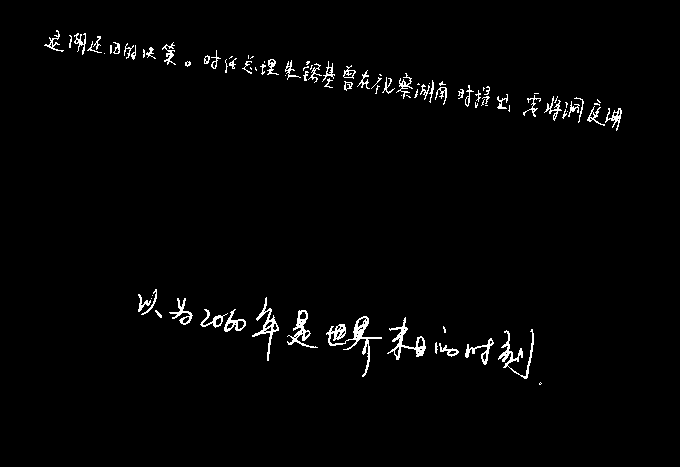 退湖还田的决策。时任总理朱镕基曾在视察湖南时提出要将洞庭湖
以为2060年是世界末日的时刻.